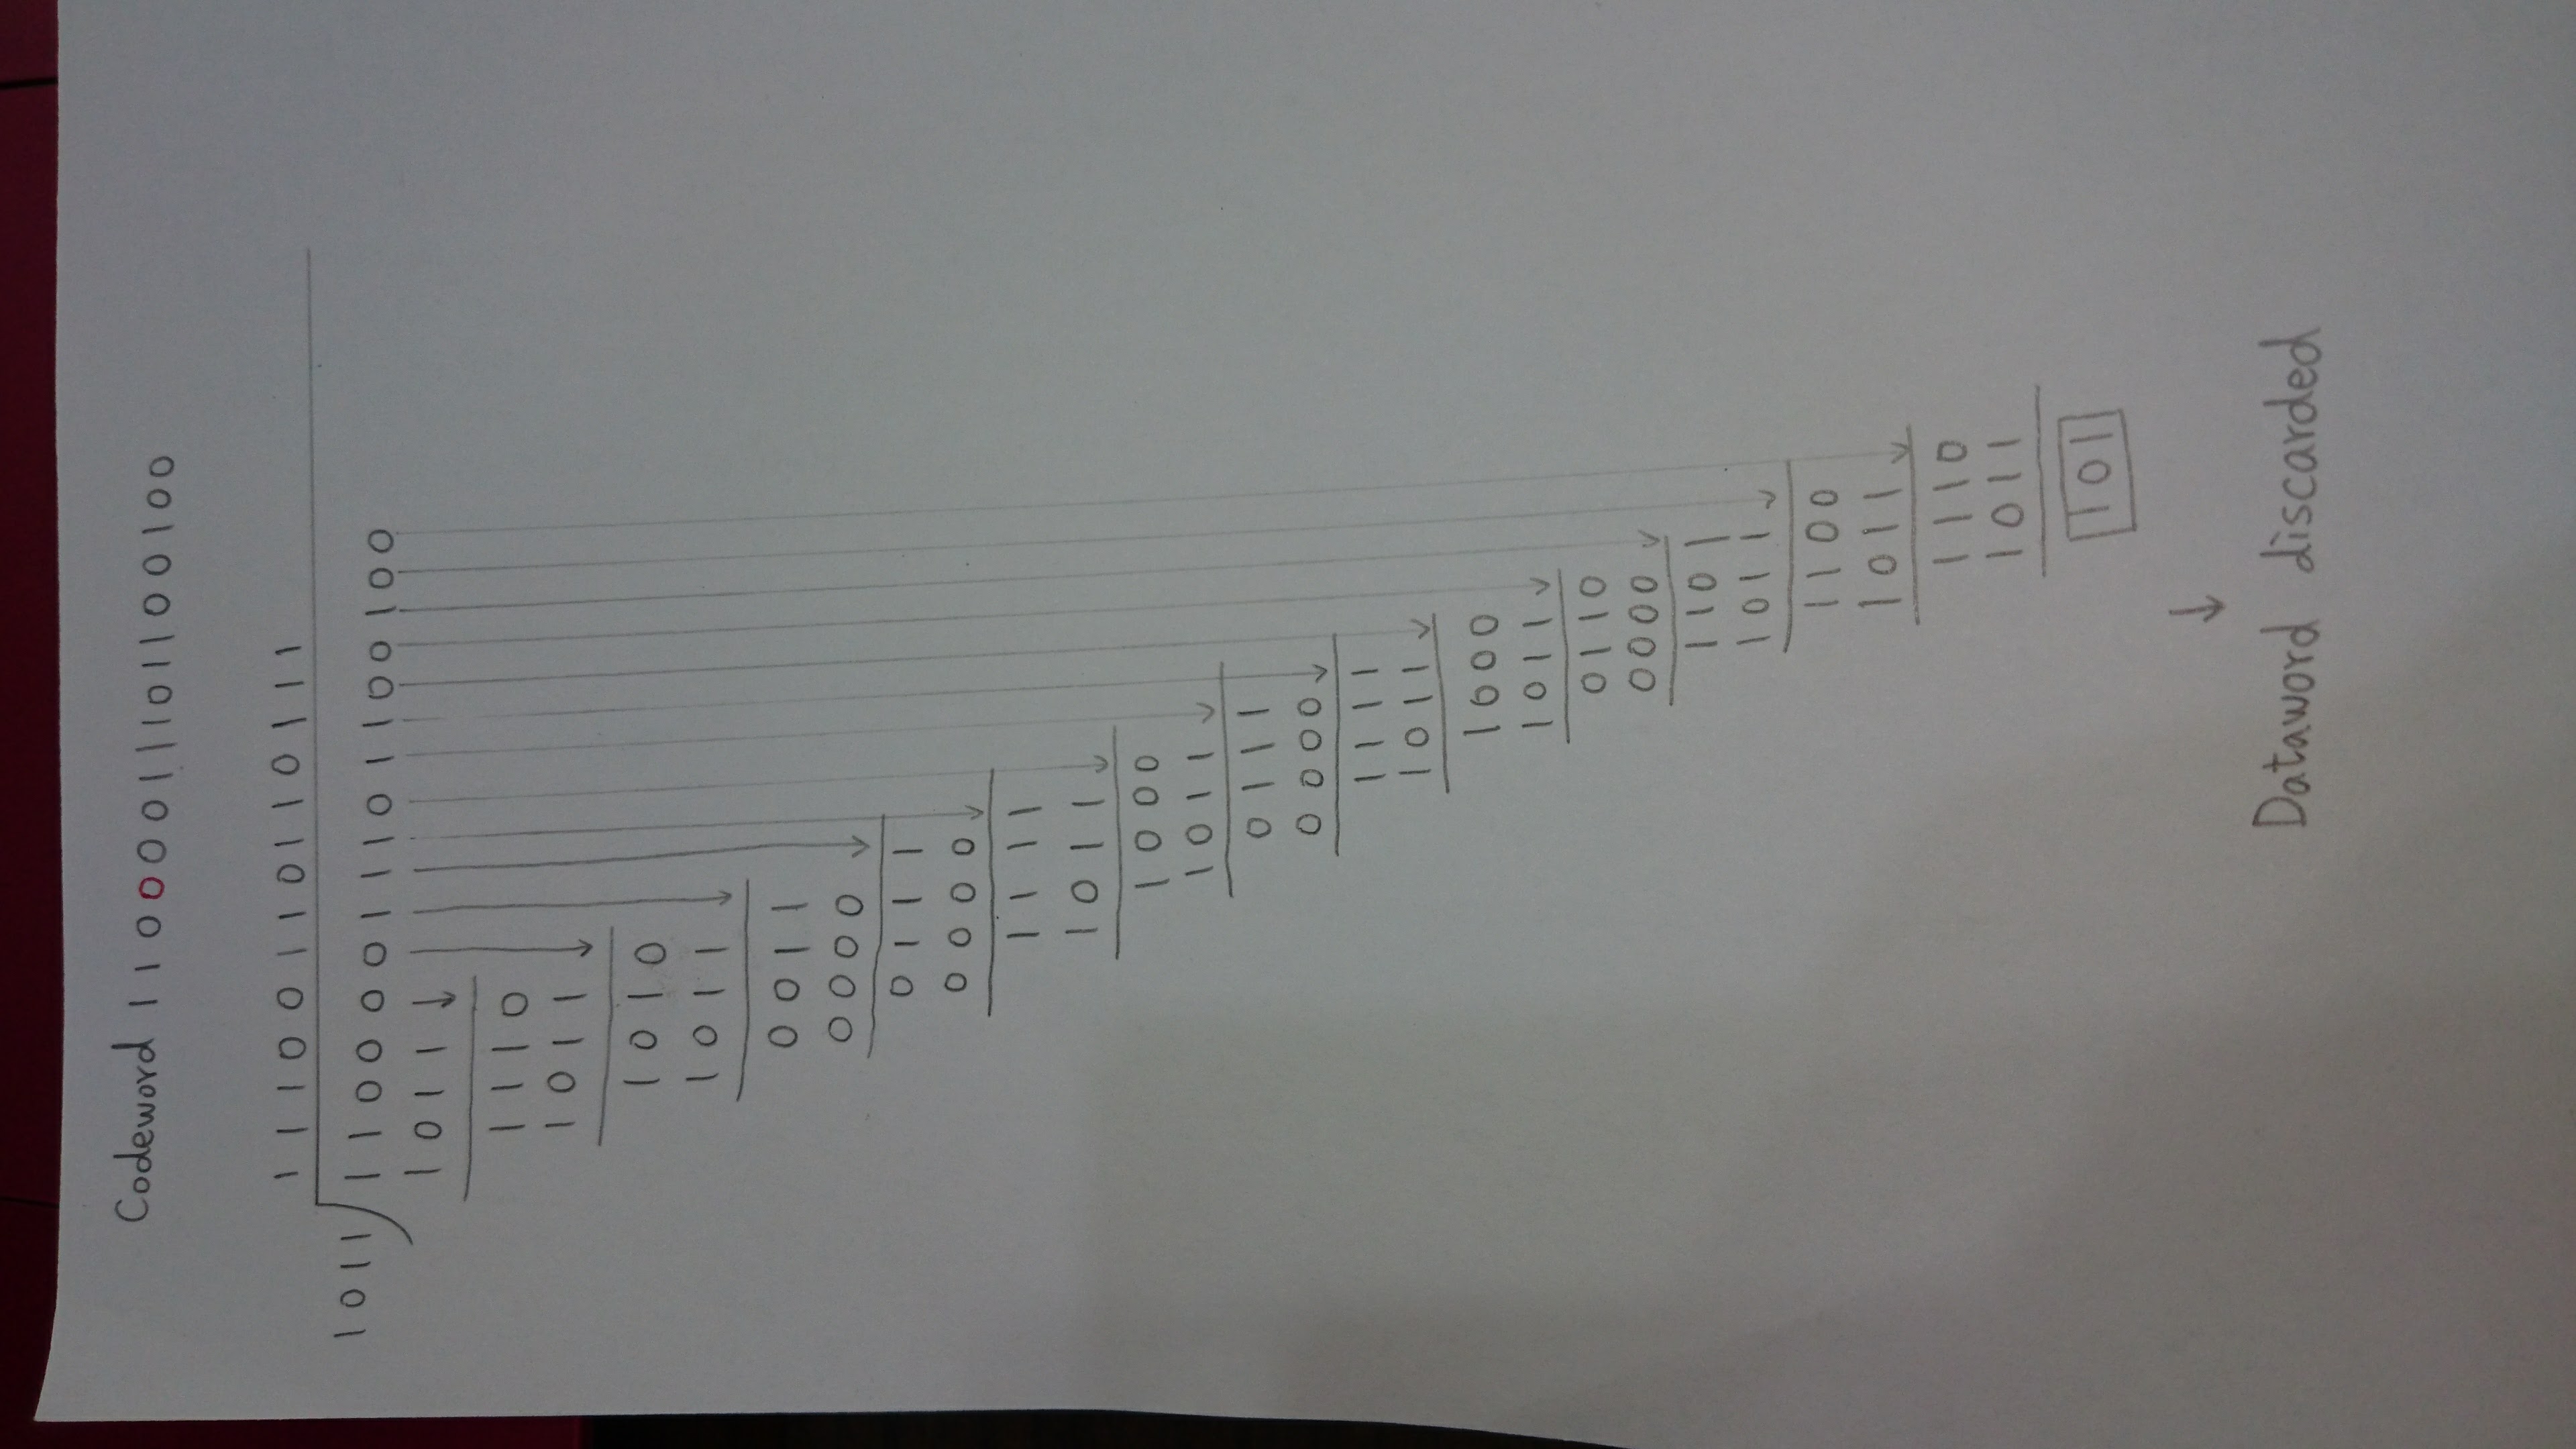 Codeword 11000011101100100
11100110110111
1011 11000011101100100
1011
1110
1011
1010
1011
0011
0000
0111
0000
1111
1011
1000
1011
0111
0000
1111
1011
1000
1011
0110
0000
1101
1011
1100
1011
1110
1011
101
Dataword discarded